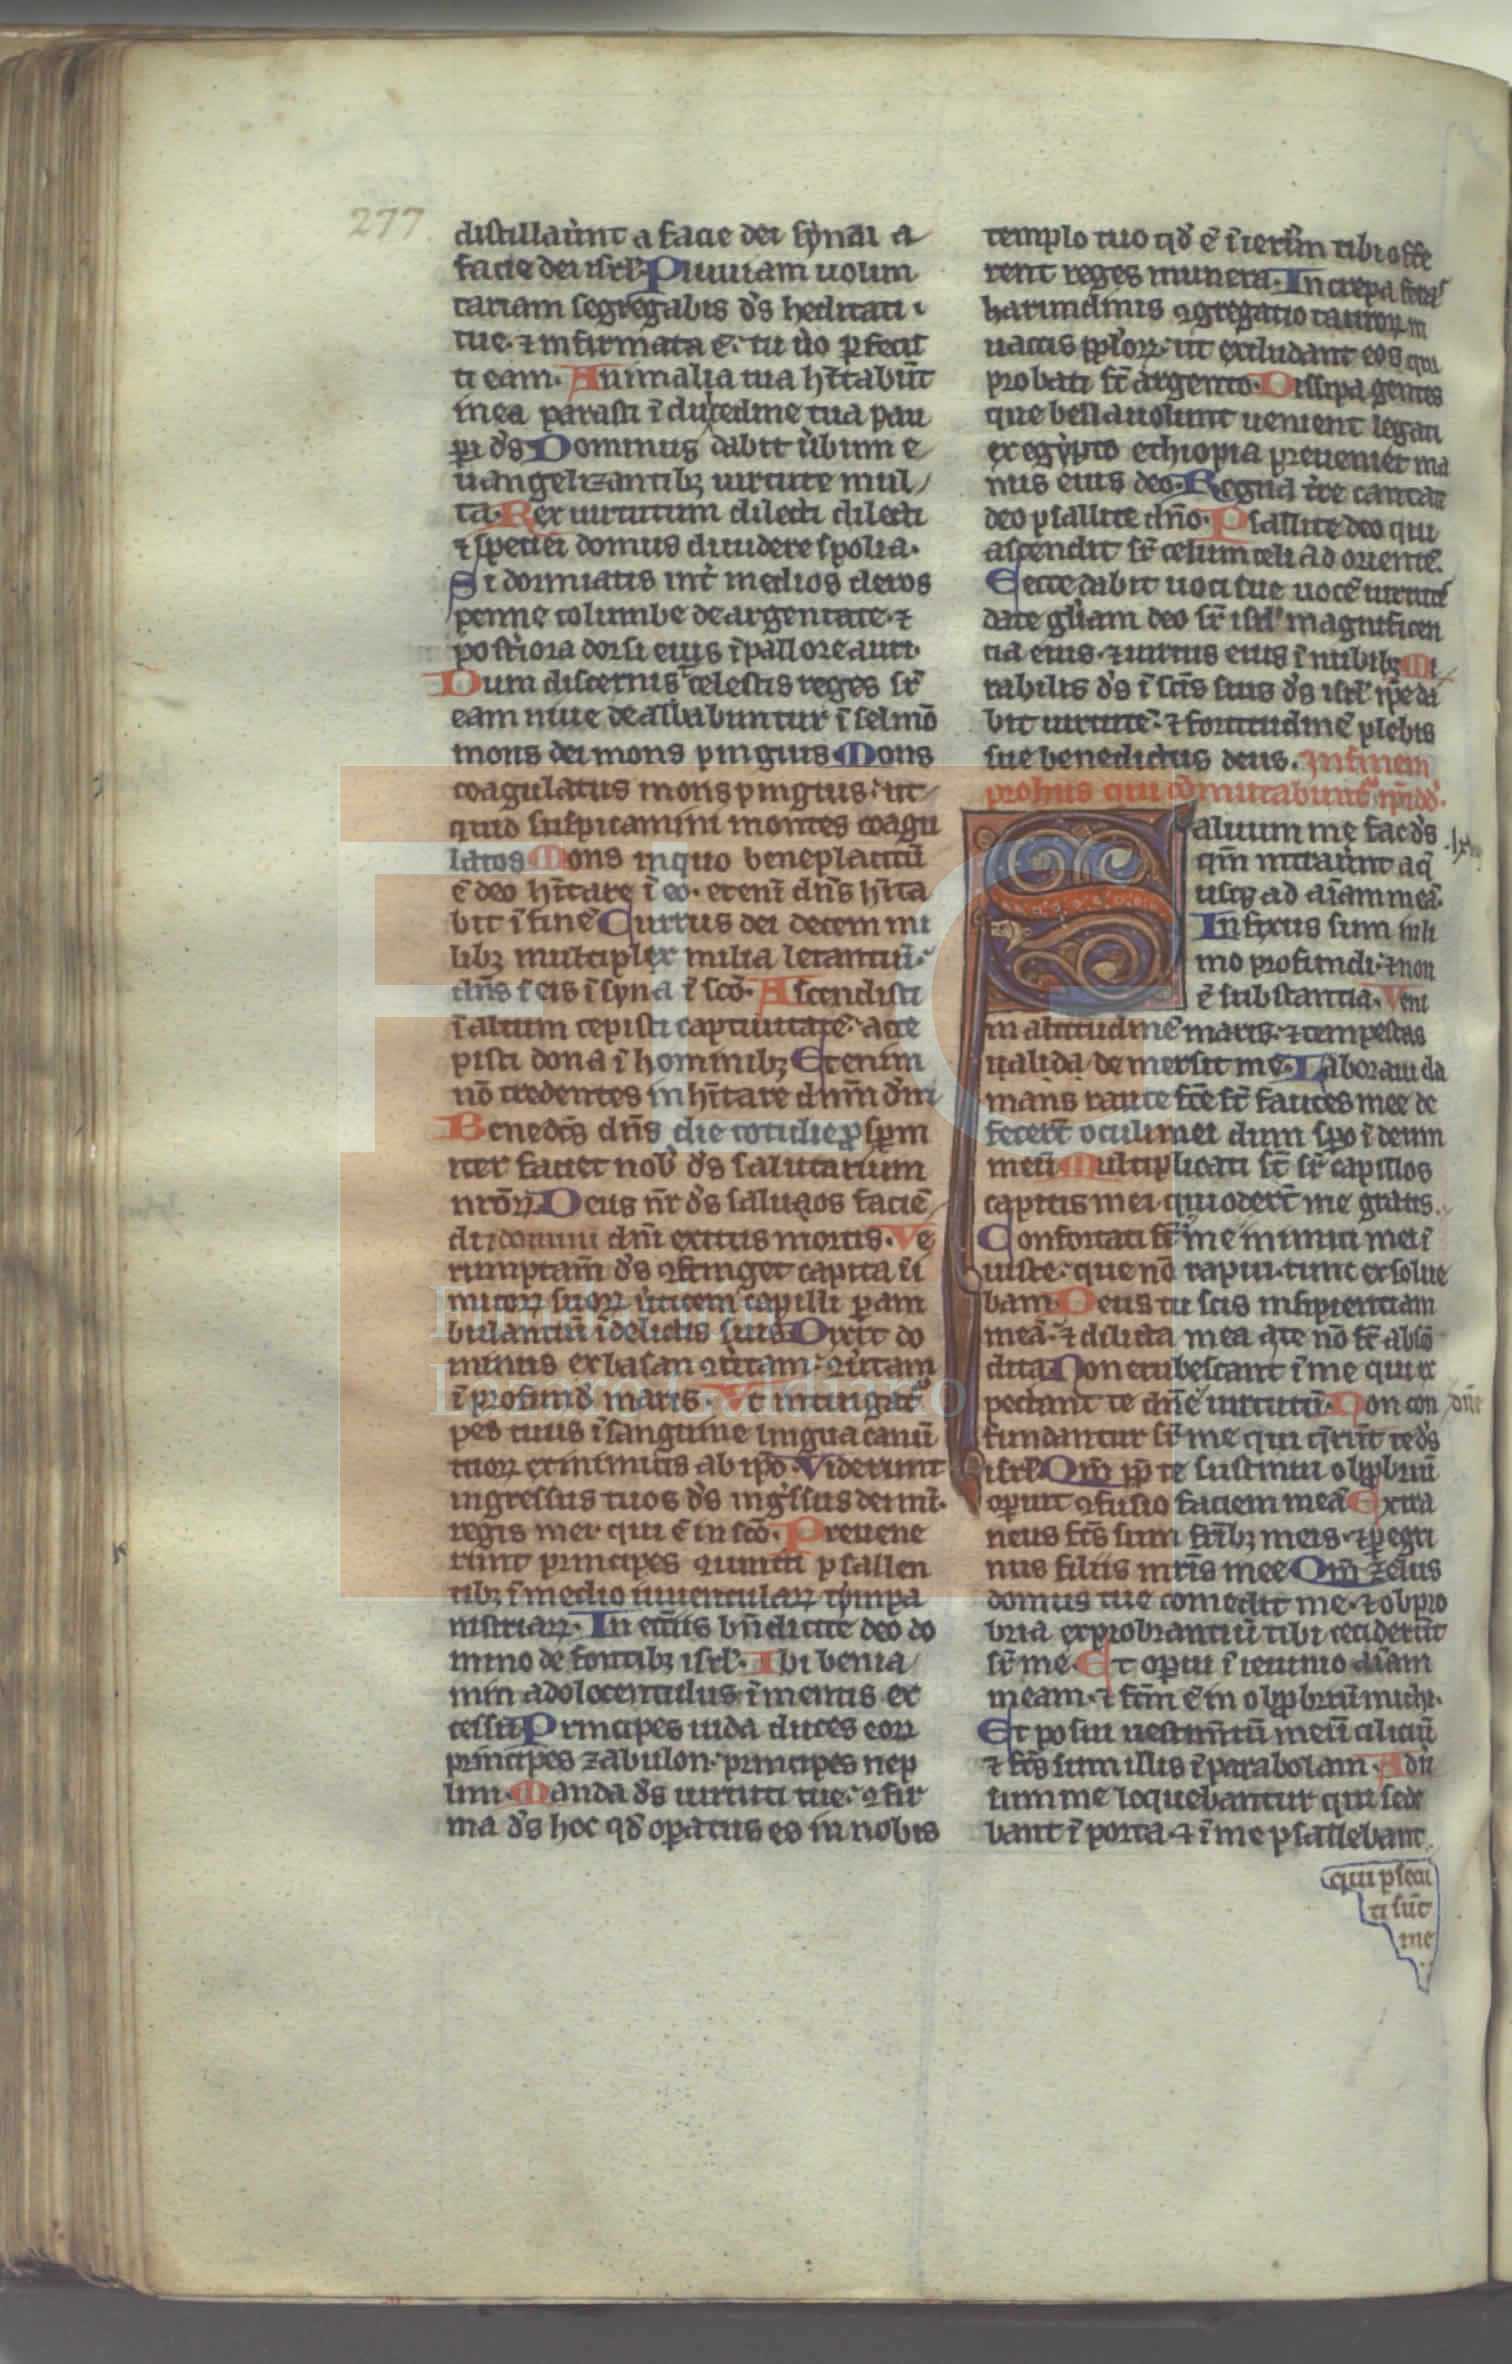 277
distillaṽnt a facie dei sẏnai a
facie dei isrl̃. Pluuiam uolun
tariam segregabis d̃s heditati
tue. ⁊ infirmata ẽ. tu ũo ꝑfecis
ti eam. Animalia tua hĩtabũt
in ea parasti ĩ dulcedine tua pau
ꝑi d̃s Dominus dabit ũbum e
uangelizantibꝫ uirtute mul
ta. Rex uirtutum dilecti dilecti
⁊ speciei domus diuidere spolia.
Si dormiatis int̃ medios cleros
penne columbe de argentate. ⁊
post̃iora dorsi eius ĩ pallore auri.
Dum discernis celestis reges sr̃
eam niue dealbabuntur ĩ selmõ
mons dei mons pinguis Mons
coagulatus mons pinguis. ut
quid suspicamini montes coagu
latos Mons in quo beneplacitũ
ẽ deo hĩtare ĩ eo. etenĩ dñs hĩta
bit ĩ finẽ Currus dei decem mi
libꝫ multiplex milia letantiũ.
dñs ĩ eis ĩ syna ĩ scõ. Ascendisti
ĩ altum cepisti captiuitatẽ. acce
pisti dona ĩ hominibꝫ Etenim
nõ credentes inhĩtare dnm̃ dm̃
Benedcs̃ dñs die cotidie ꝓspꝑum
iter faciet nob̃ d̃s salutarium
nrõꝝ Deus nr̃ d̃s saluos faciẽ
di ⁊ domini dnĩ exitus mortis. Ve
rumptam̃ d̃s ꝯfringet capita ini
micoꝝ suoꝝ ũticem capilli ꝑam
bulantiũ ĩ delictis suis Dixit do
minus ex basan ꝯũtam. ꝯũtam
ĩ profund̃ maris. Vt intingat̃
pes tuus ĩ sanguine lingua canũ
tuoꝝ ex inimicis ab ip̃o. Viderunt
ingressus tuos d̃s ing̃ssus dei mĩ.
regis mei qui ẽ in scõ. Preuene
runt principes ꝯiuncti psallen
tibꝫ ĩ medio iuuenculaꝝ tympa
nistriaꝝ. In ecc̃iis bñdicite deo do
mino de fontibꝫ isrl̃. Ibi benia
min adolocentulus ĩ mentis ex
cessu Principes iuda duces eoꝝ
principes zabulon. principes nep
lim. Manda d̃s uirtuti tue. ꝯfir
ma d̃s hoc qd̃ oꝑatus es in nobis
templo tuo qd̃ ẽ ĩ ierlm̃ tibi offe
rent reges munera. Increpa feras
harundinis ꝯgregatio tauroꝝ in
uaccis pploꝝ. ut excludant eos qui
probati st̃ argento. Dissipa gentes
que bella uolunt uenient legati
ex egẏpto ethiopia preueniet ma
nus eius deo. Regna tr̃e cantate
deo psallite dño. Psallite deo qui
ascendit sr̃ celum celi ad orientẽ.
Ecce dabit uoci sue uocẽ uirtutis
date gliam deo sr̃ isrl̃ magnificen
tia eius. ⁊ uirtus eius ĩ nubibꝫ Mi
rabilis d̃s ĩ scĩs suis d̃s isrl̃ ip̃e da
bit uirtutẽ. ⁊ fortitudinẽ plebis
sue benedictus deus. In finem
pro hiis qui cõmutabunt̃ ip̃i dd̃.
Saluum me fac d̃s
qm̃ intraũnt aq̃
usqꝫ ad aĩam meã.
Infixus sum in li
mo profundi. ⁊ non
ẽ substantia. Veni
in altitudinẽ maris. ⁊ tempestas
ualida de mersit me. Laboraui cla
mans rauce fcẽ st̃ fauces mee de
fecert̃ oculi mei dum spero ĩ deum
meũ Multiplicati st̃ sr̃ capillos
capitis mei. qui odert̃ me gratis.
Confortati st̃ sr̃ me inimici mei ĩ
iuste. que nõ rapui. tunc exsolue
bam. Deus tu scis insipientiam
meã. ⁊ dilicta mea a te nõ st̃ abscõ
dita Non erubescant ĩ me qui ex
pectant te dnẽ uirtutũ. Non con
fundantur sr̃ me qui q̃rũt te d̃s
isrl̃. Qm̃ ꝓp̃ te sustinui obꝓbriũ
oꝑuit ꝯfusio faciem meã Extra
neus fcs̃ sum fr̃ibꝫ meis. ⁊ ꝑegri
nus filiis mr̃is mee Qm̃ zelus
domus tue comedit me. ⁊ obpro
bria exprobrantiũ tibi ceciderũt
sr̃ me. Et oꝑui ĩ ieiunio aĩam
meam. ⁊ fcm̃ ẽ in obꝓbriũ michi.
Et posui uestimñtũ meũ ciliciũ
⁊ fcs̃ sum illis ĩ parabolam. Adũ
sum me loquebantur qui sede
bant ĩ porta. ⁊ ĩ me psallebant
qui psecu
ti sũt
me